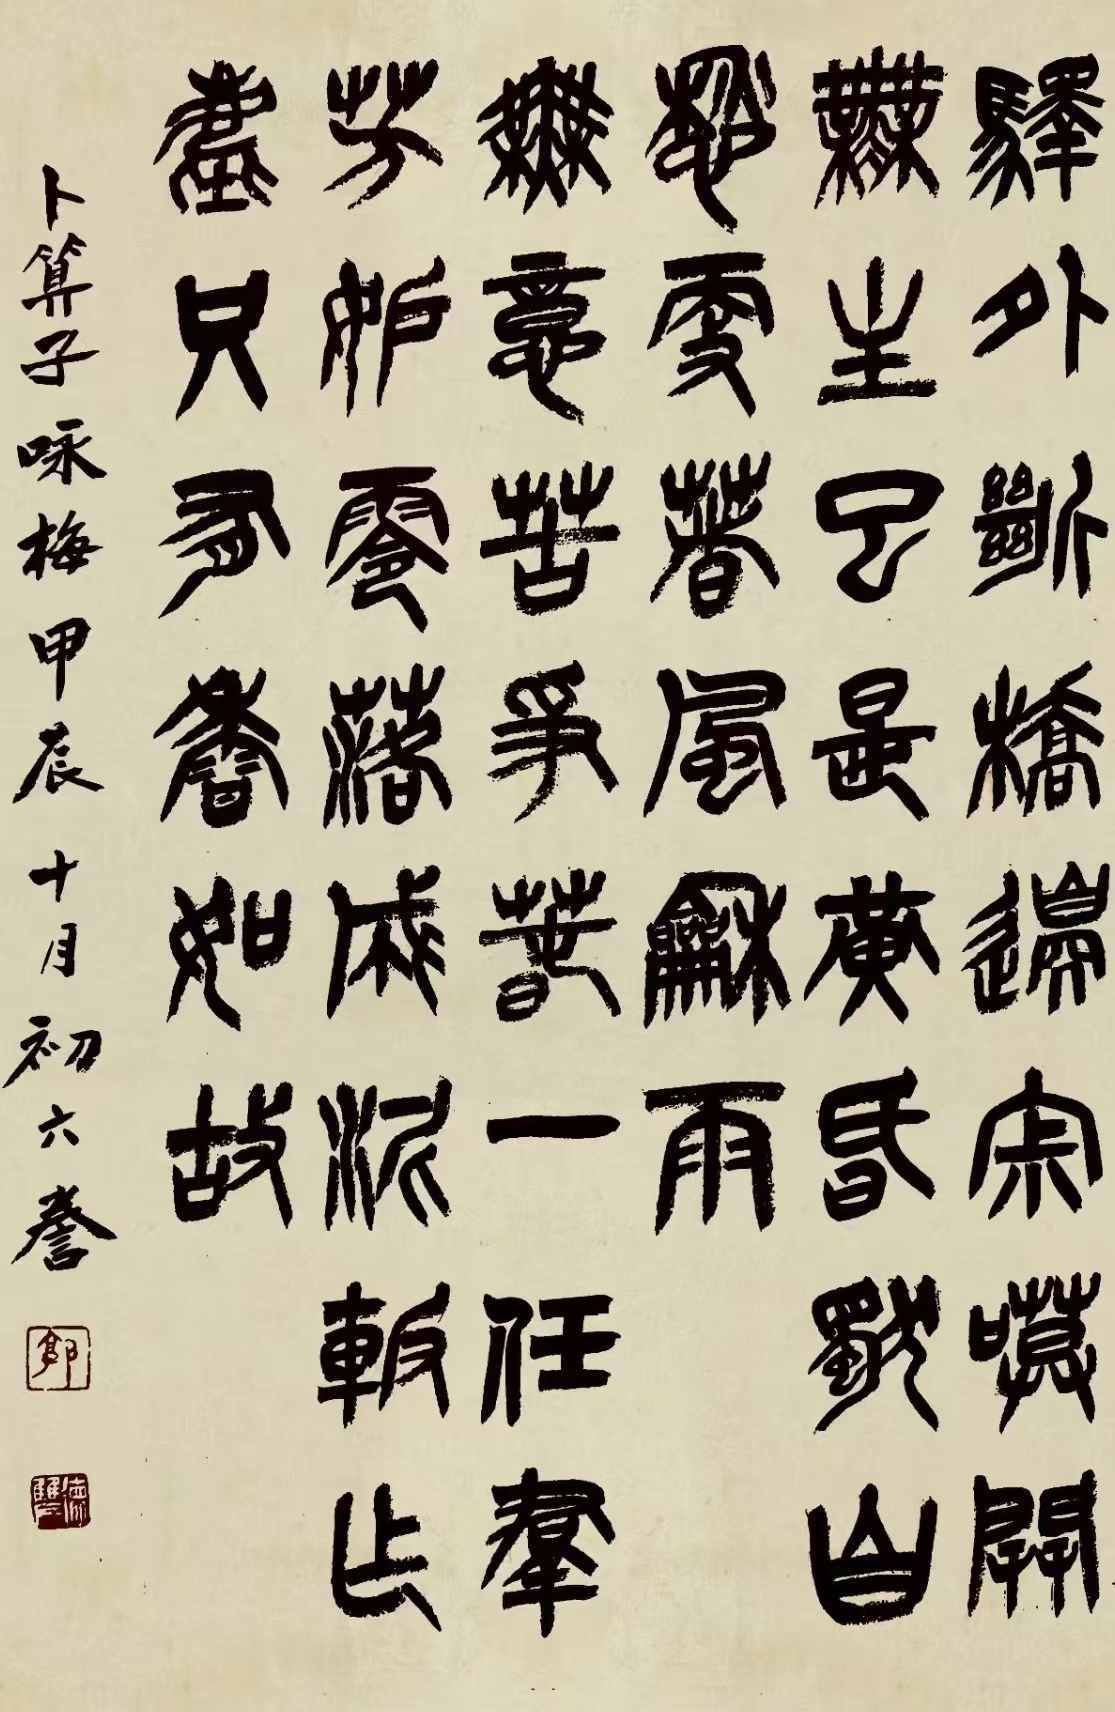 驛外斷橋邊宗嘆開
無主已是黃昏獨自
愁更著風龢雨
無意苦爭春一任羣
芳妒零落成泥輾作
盡只有香如故
卜算子咏梅甲辰十月初六誊
郭